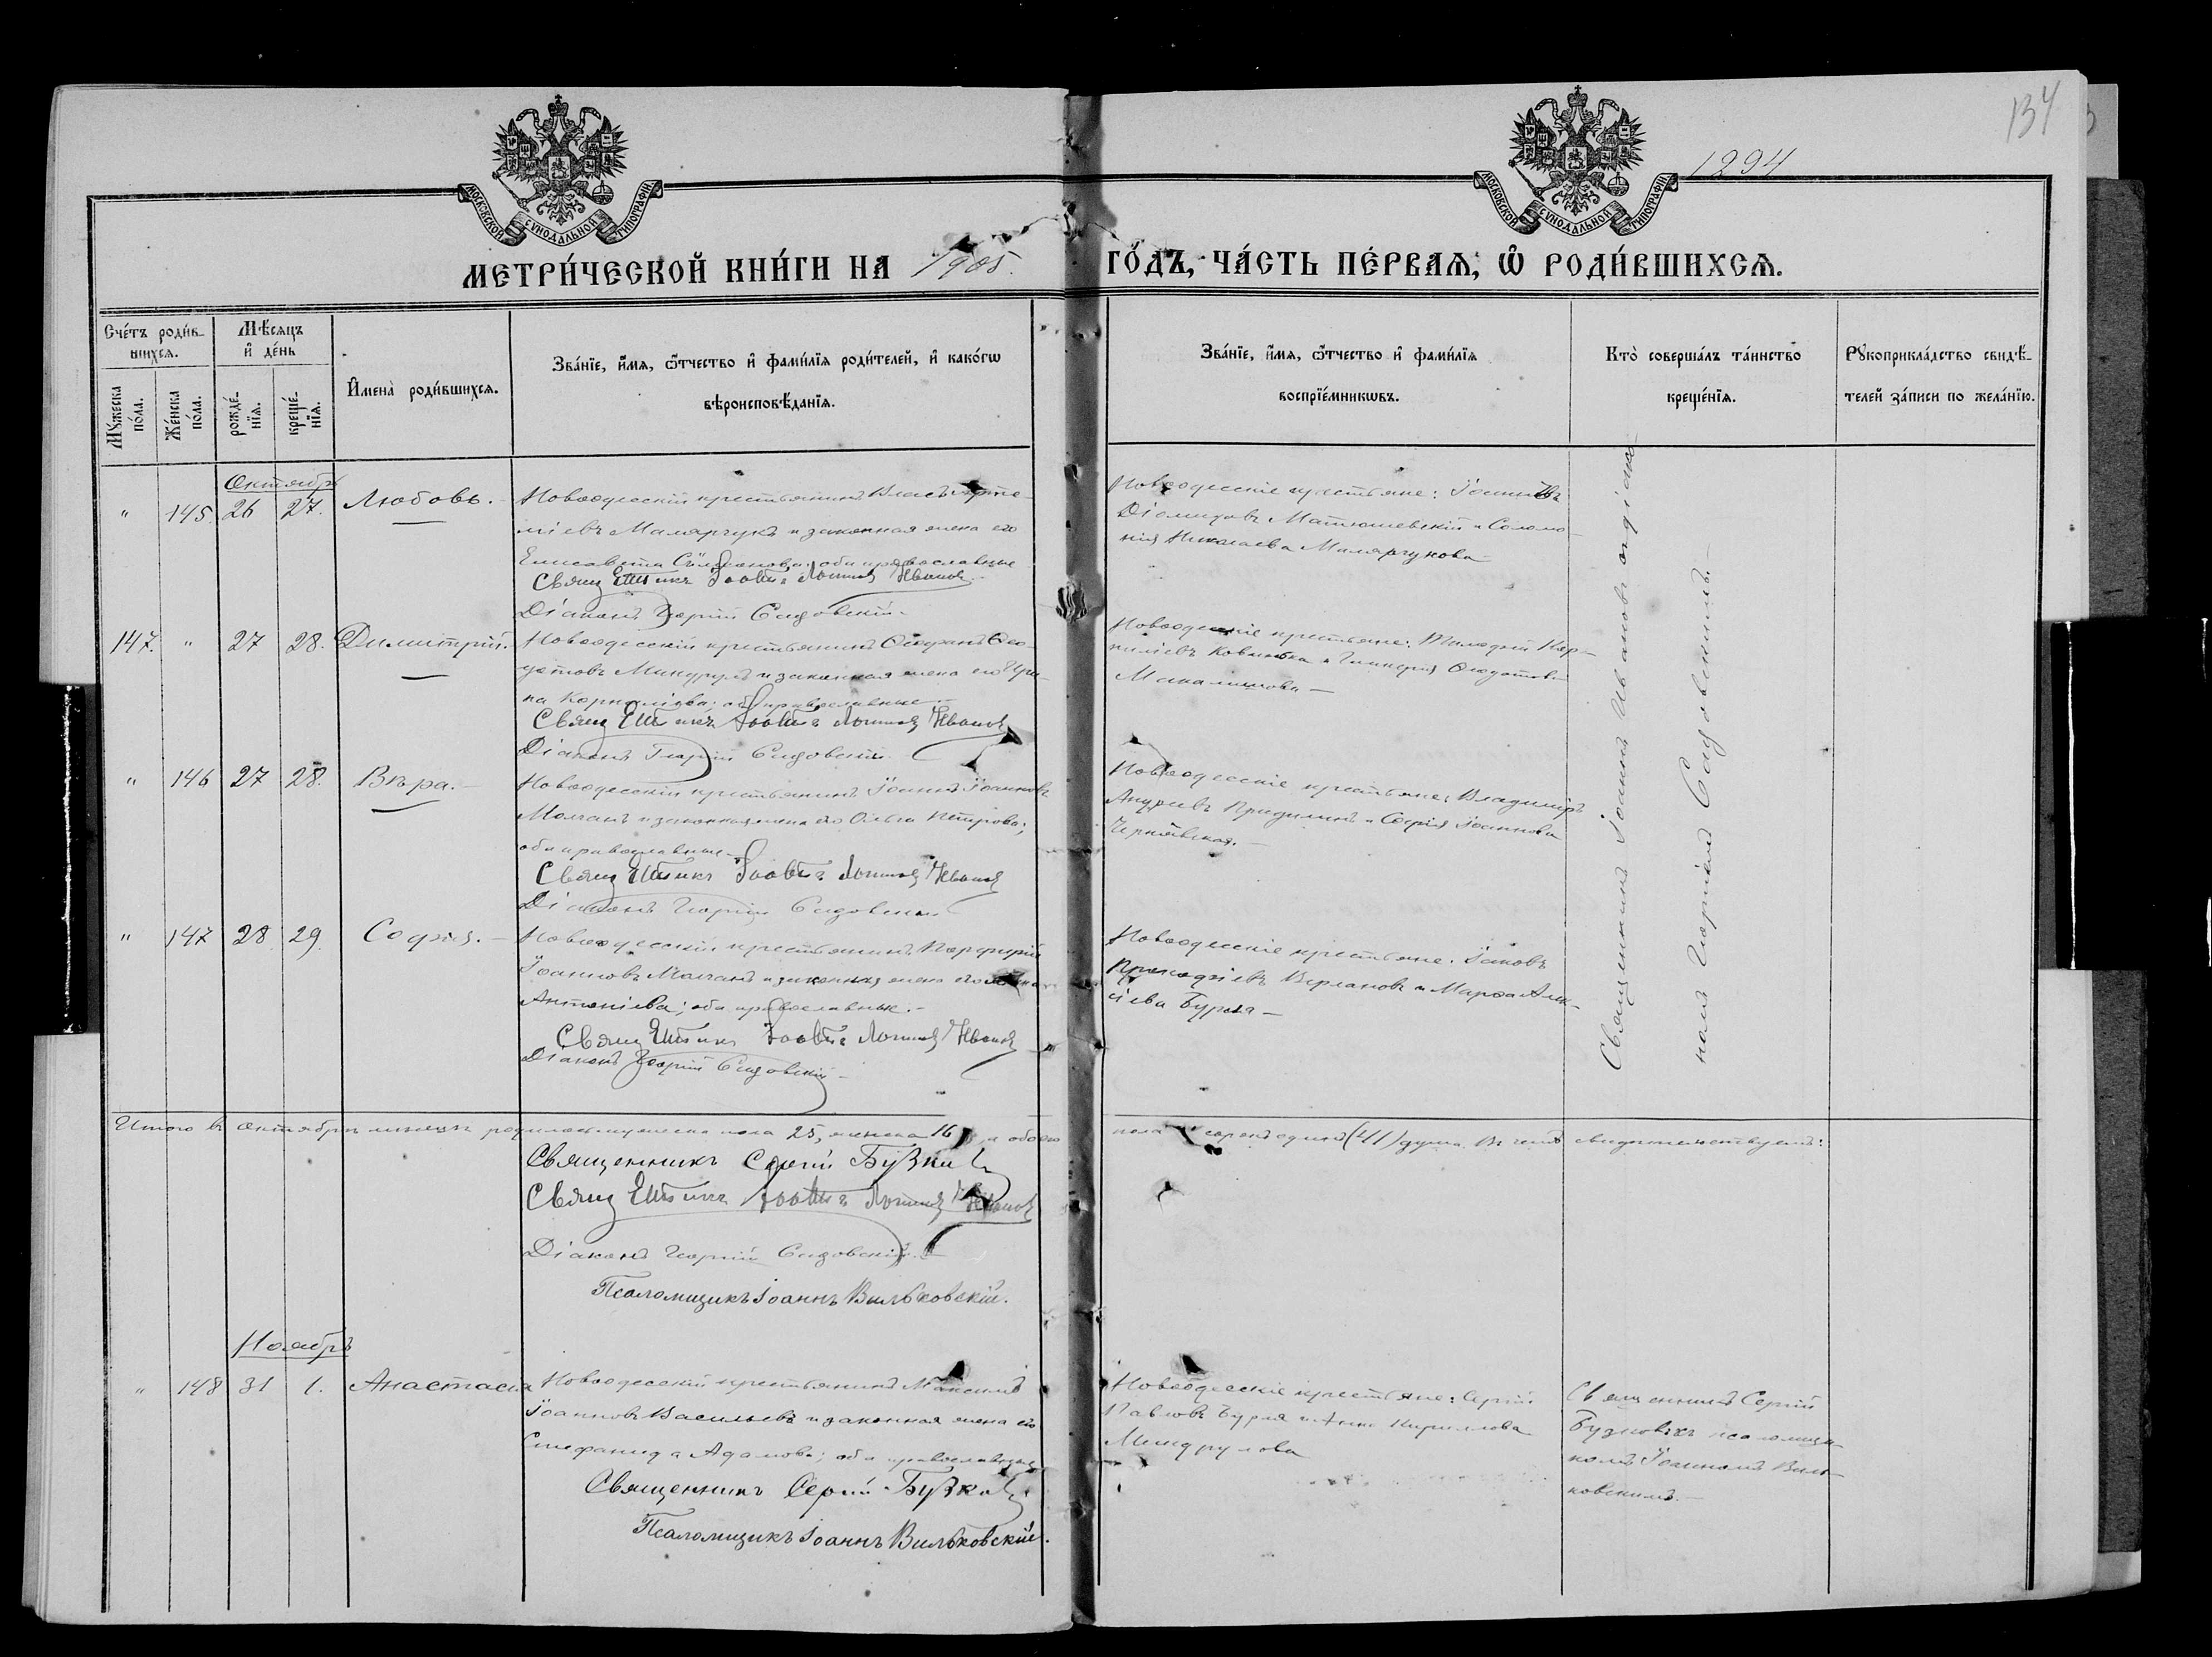 134
1294
МОСКОВСКОЙ СѴНОДАЛЬНОЙ ТИПОГРАФІИ
МОСКОВСКОЙ СѴНОДАЛЬНОЙ ТИПОГРАФІИ
МЕТРИ́ЧЕСКОЙ КНИ́ГИ НА 1905. ГО́ДЪ, ЧА́СТЬ ПЕ́РВАѦ, Ѡ҆ РОДИ́ВШИХСѦ.
Сче́тъ роди́в-
шихсѧ.
Мꙋжеска по́ла.
Же́нска по́ла.
Мѣ́сѧцъ и҆ де́нь
рожде́-нїѧ.
креще́-нїѧ.
И҆мена̀ роди́вшихсѧ.
Зва́нїе, и҆́мѧ, ѻ҆́тчество и҆ фами́лїѧ роди́телей, и҆ како́гѡ
вѣроисповѣ́данїѧ.
Зва́нїе, и҆́мѧ, ѻ҆́тчество и҆ фами́лїѧ
воспрїе́мникѡвъ.
Кто̀ соверша́лъ та́инство
креще́нїѧ.
Рꙋкоприкла́дство свидѣ́-
телей за́писи по жела́нїю.
Октябрь
" 145. 26 27. Любовь.
Новоодесскій крестьянинъ Власъ
міевъ Малярчукъ и законная жена его
Елисавета оба православные
Свящ Іоаннъ Ивановъ
Діаконъ Георгій Садовскій
Новоодесскіе крестьяне: Іоаннъ
Діомидовъ Матюшевскій и Соломо-
нія Николаева Малярчукова
147. " 27 28. Димитрій.
Новоодесскій крестьянинъ Ѳео-
дотовъ и законная жена его Ири-
на Корниліева; оба православные
Свящ Ивановъ
Діаконъ Георгій Садовскій
Новоодесскіе крестьяне: Тимоѳей Кор-
ниліевъ и Гликерія Ѳеодотова
" 146 27 28. Вѣра.
Новоодесскій крестьянинъ Іоаннъ Іоанновъ
Молчанъ и законная жена его Ольга Петрова;
оба православные
Свящ Ивановъ
Діаконъ Георгій Садовскій
Новоодесскіе крестьяне: Владиміръ
Андреевъ и Софія Іоаннова
Чернявская.
" 147 28 29 Софія.
Новоодесскій крестьянинъ Порфирій
Іоанновъ Молчанъ и законная жена его
Антоніева; оба православные.
Свящ Ивановъ
Діаконъ Георгій Садовскій
Новоодесскіе крестьяне: Іаковъ
Верлановъ и Марѳа Алек-
сіева Бурла
Священникъ Іоаннъ Ивановъ съ діако-
номъ Георгіемъ Садовскимъ.
Итого въ Октябрѣ мѣсяцѣ родилось мужеска пола 25, женска 16, а обоего пола сорокъ одинъ (41) душа. Въ чемъ свидѣтельствуемъ:
Священникъ Сергій Бузков
Свящ Ивановъ
Діаконъ Георгій Садовскій
Псаломщикъ Іоаннъ Вильковскій.
Ноябрь
" 148 31 1. Анастасія
Новоодесскій крестьянинъ Максимъ
Іоанновъ Васильевъ и законная жена его
Стефанида Адамова; оба православные
Священникъ Сергій Бузков
Псаломщикъ Іоаннъ Вильковскій.
Новоодесскіе крестьяне: Сергій
Павловъ Бурла и Анна Кириллова
Миндрулова
Священникъ Сергій
съ псаломщи-
комъ Іоанномъ Виль-
ковскимъ.